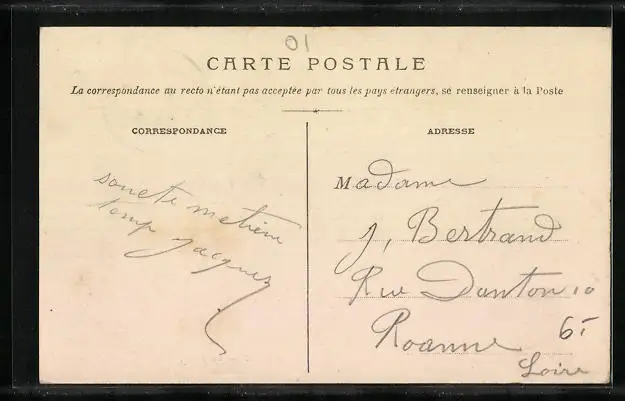 01
CARTE POSTALE
La correspondance au recto n'étant pas acceptée par tous les pays étrangers, se renseigner à la Poste
CORRESPONDANCE
ADRESSE
Jacques
Madame
J, Bertrand
Rue Danton 10
Roanne
Loire